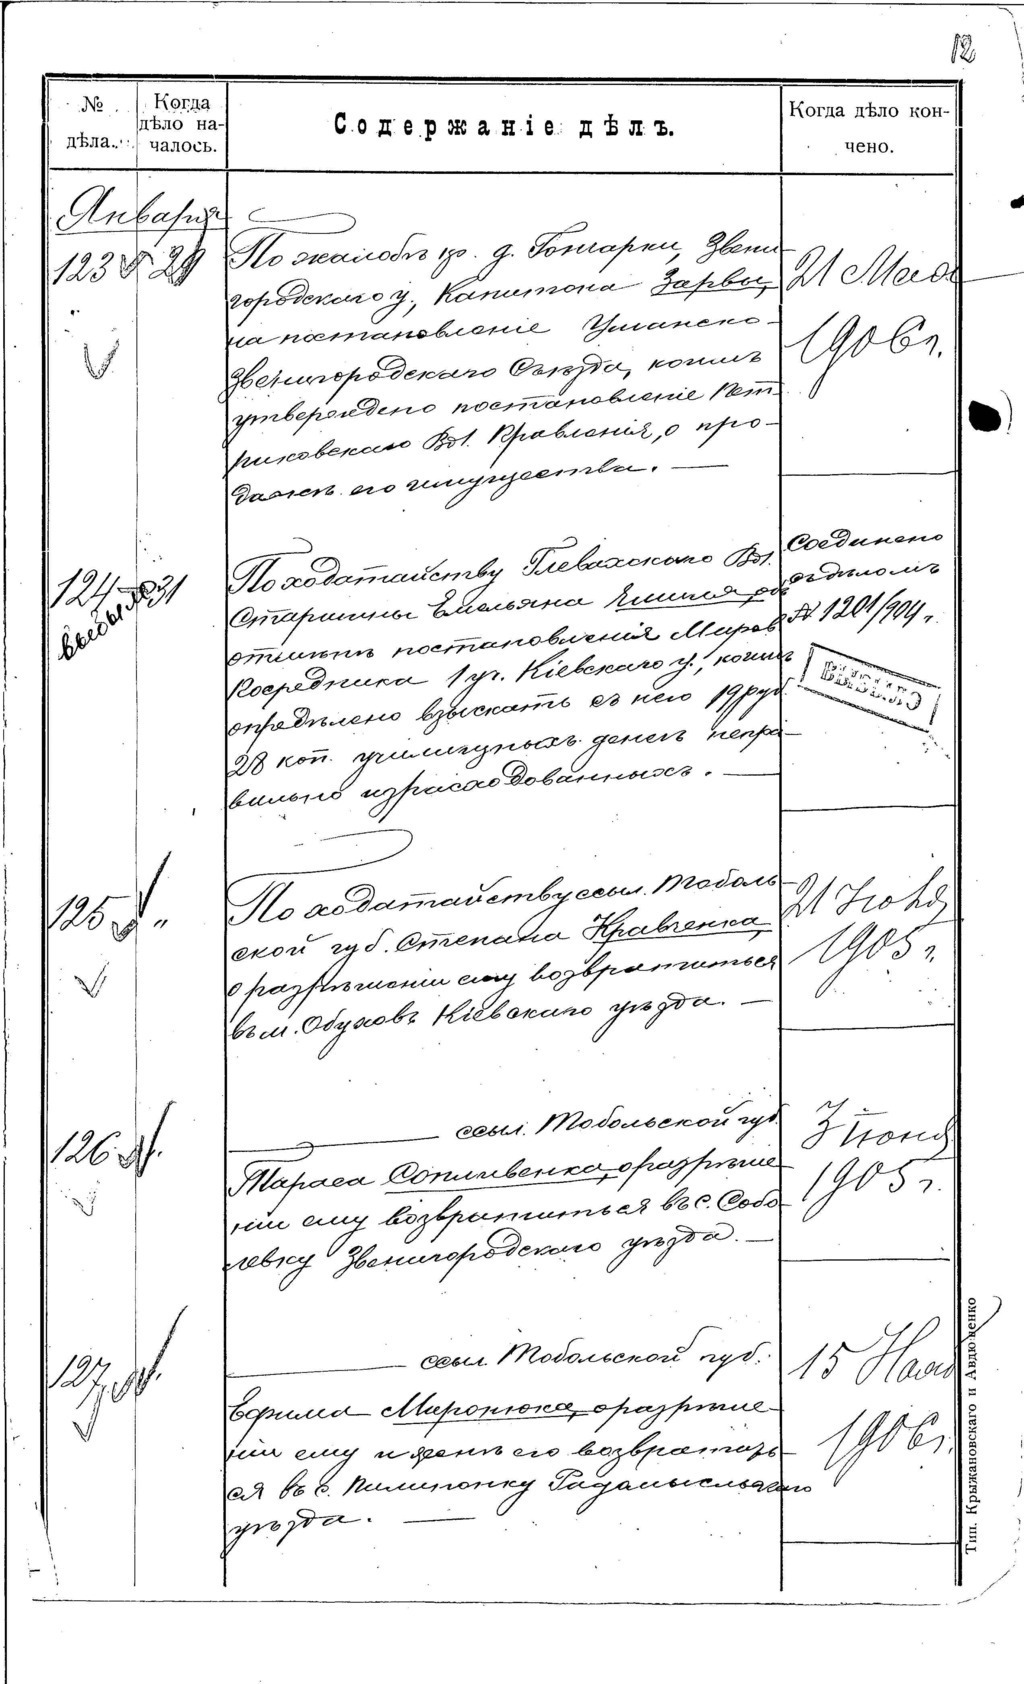 12
№ дѣла.
Когда дѣло началось.
Содержаніе дѣлъ.
Когда дѣло кончено.
Января
123 29
По жалобѣ кр. д. Гончарки, Звени-
городскаго у., Капитона Зарвы,
на постановленіе Уманско-
Звенигородскаго Съѣзда, коимъ
утверждено постановленіе Пет-
риковскаго Вол. Правленія, о про-
дажѣ его имущества. —
21 Мая
1906 г.
124 31
По ходатайству Глевахскаго Вол.
Старшины Емельяна об
отмѣнѣ постановленія Миров.
Посредника 1 уч. Кіевскаго у., коимъ
опредѣлено взыскать съ него 19 руб.
28 коп. училищныхъ денегъ непра-
вильно израсходованныхъ. —
Соединено
съ дѣломъ
№ 1201/904 г.
ВЫБЫЛО
125 "
По ходатайству ссыл. Тоболь-
ской губ. Степана Кравченка,
о разрѣшеніи ему возвратиться
въ м. Обуховъ Кіевскаго уѣзда. —
21
1905 г.
126
ссыл. Тобольской губ.
Тараса Сопливенка, о разрѣше-
ніи ему возвратиться въ с. Собо-
левку Звенигородскаго уѣзда. —
3 Іюня
1905 г.
127
ссыл. Тобольской губ.
Ефима Миронюка, о разрѣше-
ніи ему и женѣ его возвратить-
ся въ с. Пилипонку Радомысльскаго
уѣзда. —
15
1906 г.
Тип. Крыжановскаго и Авдюшенко